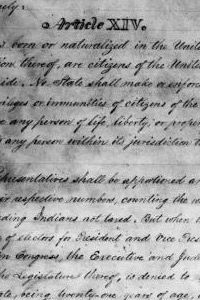 ely:
Article XIV.
s born or naturalized in the Unite
tion thereof, are citizens of the United
side. No State shall make or enforce
leges or immunities of citizens of the
e any person of life, liberty, or proper
any person within its jurisdiction t
resentatives shall be apportioned a
r respective numbers, counting the w
ding Indians not taxed. But when t
of electors for President and Vice Pres
n Congress, the Executive and Judi
the Legislature thereof, is denied to
ate, being twenty-one years of age,